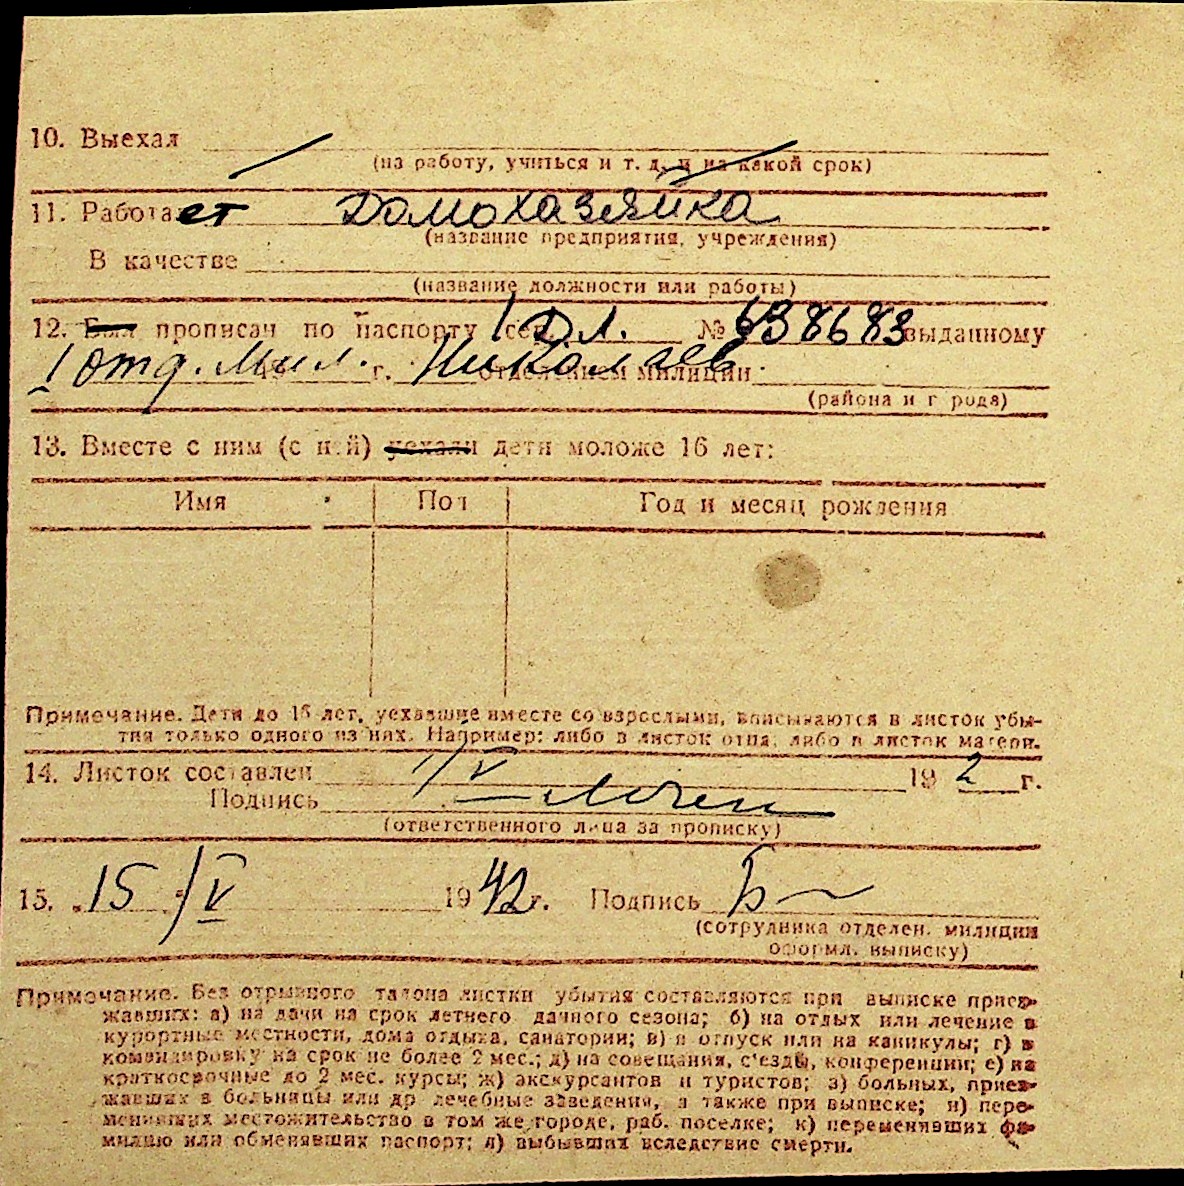 10. Выехал
(на работу, учиться и т. д. и на какой срок)
11. Работает Домохазяйка
(название предприятия, учреждения)
В качестве
(название должности или работы)
12. Был прописан по паспорту сер. № 638683 выданному
1 отд. Мил. г. Николаев отделением милиции
(района и города)
13. Вместе с ним (с ней) уехали дети моложе 16 лет:
Имя Пол Год и месяц рождения
Примечание. Дети до 16 лет, уехавшие вместе со взрослыми, вписываются в листок убы-
тия только одного из них. Например: либо в листок отца, либо в листок матери.
14. Листок составлен 1/V 19 2 г.
Подпись
(ответственного лица за прописку)
15. "15"/V 1942 г. Подпись
(сотрудника отделен. милиции
оформл. выписку)
Примечание. Без отрывного талона листки убытия составляются при выписке приез-
жавших: а) на дачи на срок летнего дачного сезона; б) на отдых или лечение в
курортные местности, дома отдыха, санатории; в) в отпуск или на каникулы; г) в
командировку на срок не более 2 мес.; д) на совещания, с'езды, конференции; е) на
краткосрочные до 2 мес. курсы; ж) экскурсантов и туристов; з) больных, приез-
жавших в больницы или др лечебные заведения, а также при выписке; и) пере-
менивших местожительство в том же городе, раб. поселке; к) переменивших фа-
милию или обменявших паспорт; л) выбывших вследствие смерти.